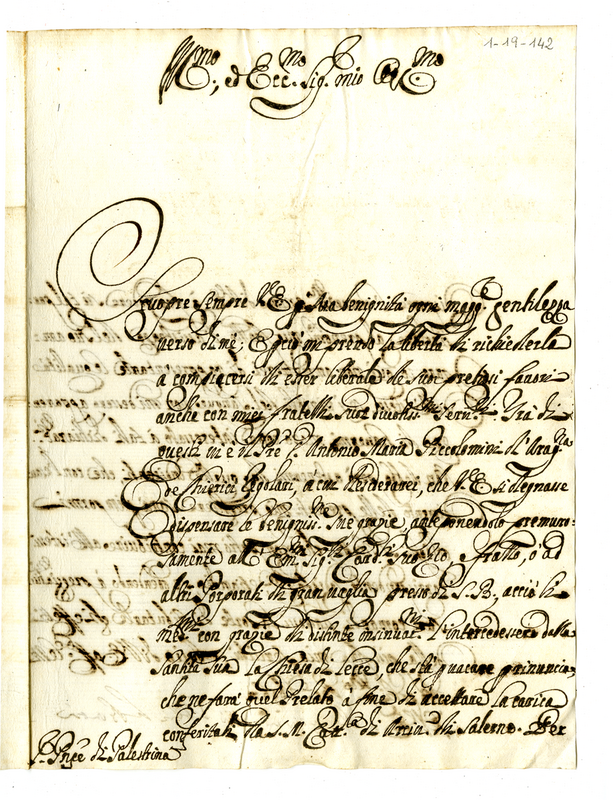 1-19-142
Ill.mo, ed Ecc.mo Sig. mio
sempre V.E. p sua benignità ogni magg.re gentilezza
verso di me; E perciò mi prendo la libertà di richiederla
a compiacersi di esser liberale de suoi pretiosi favori
anche con miei fratelli suoi divotiss.mi Serv.ri. Tra di
questi vi è il Pre D. Antonio Maria Piccolomini d'Arag.na
de Chierici Regolari, a cui desiderarei, che V.E. si degnasse
dispensare le benigniss.me sue grazie, anteponendolo premuro=
samente all' Em.mo Sig. Card.le suo frallo, o ad
altri Porporati di gran vaglia presso di S.B., acciò li
con grazie di distinte insinuat.ni l'intercedessero dalla
Santità Sua la Chiesa di Lecce, che sta p vacare p rinuncia,
che ne farà quel Prelato a fine di accettare la carica
conferitali da S.M. di Arciv.o di Salerno. Per
S. Pnpe di Palestina